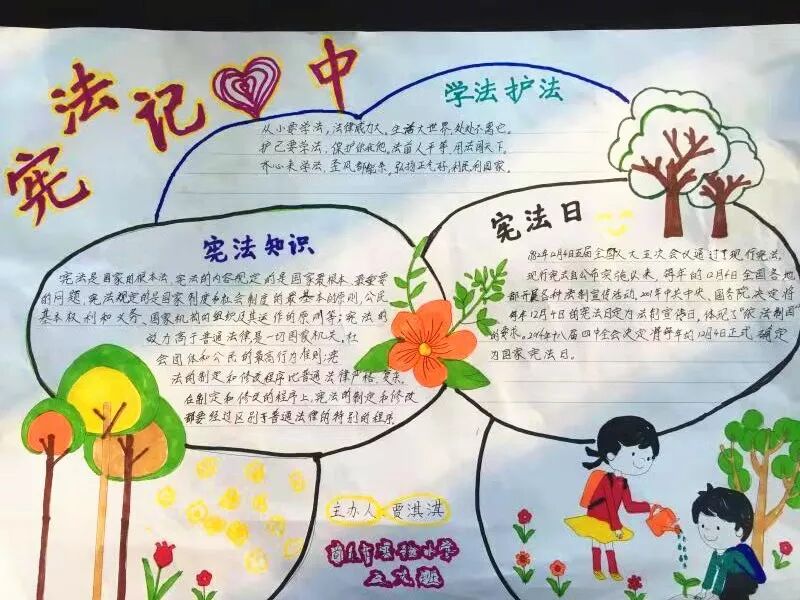 宪法记中
学法护法
从小要学法,法律威力大。生活大世界,处处不离它。
护己要学法,保护你我他,法笛人千年,用法闯天下。
齐心来学法,歪风都能杀,弘扬正气好,利民利国家。
宪法知识
宪法是国家的根本法,宪法的内容规定的是国家最根本、最重要
的问题,宪法规定的是国家制度和社会制度的最基本的原则,公民
基本权利和义务、国家机构的组织及其运作的原则等;宪法的
效力高于普通法律是一切国家机关、社
会团体和公民的最高行为准则;宪
法的制定和修改程序比普通法律严格、复杂
在制定和修改的程序上,宪法的制定和修改
都要经过区别于普通法律的特别的程序
宪法日
年12月4日五届全国人大五次会议通过了现行宪法,
现行宪法自公布实施以来,每年的12月4日全国各地
都开展各种法制宣传活动。2001年中共中央、国务院决定将
每年12月4日的宪法日定为法制宣传日,体现了“依法制国”
的要求。2014年十八届四中全会决定将每年的12月4日正式确定
为国家宪法日。
主办人:贾淇淇
市实验小学
五六班